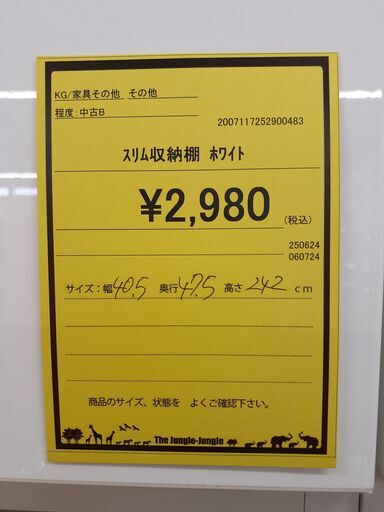 KG/家具その他 その他
程度:中古B
2007117252900483
スリム収納棚 ホワイト
¥2,980(税込)
250624
060724
サイズ:幅40.5 奥行47.5 高さ242 cm
商品のサイズ、状態を よくご確認下さい。
The Jungle-Jungle